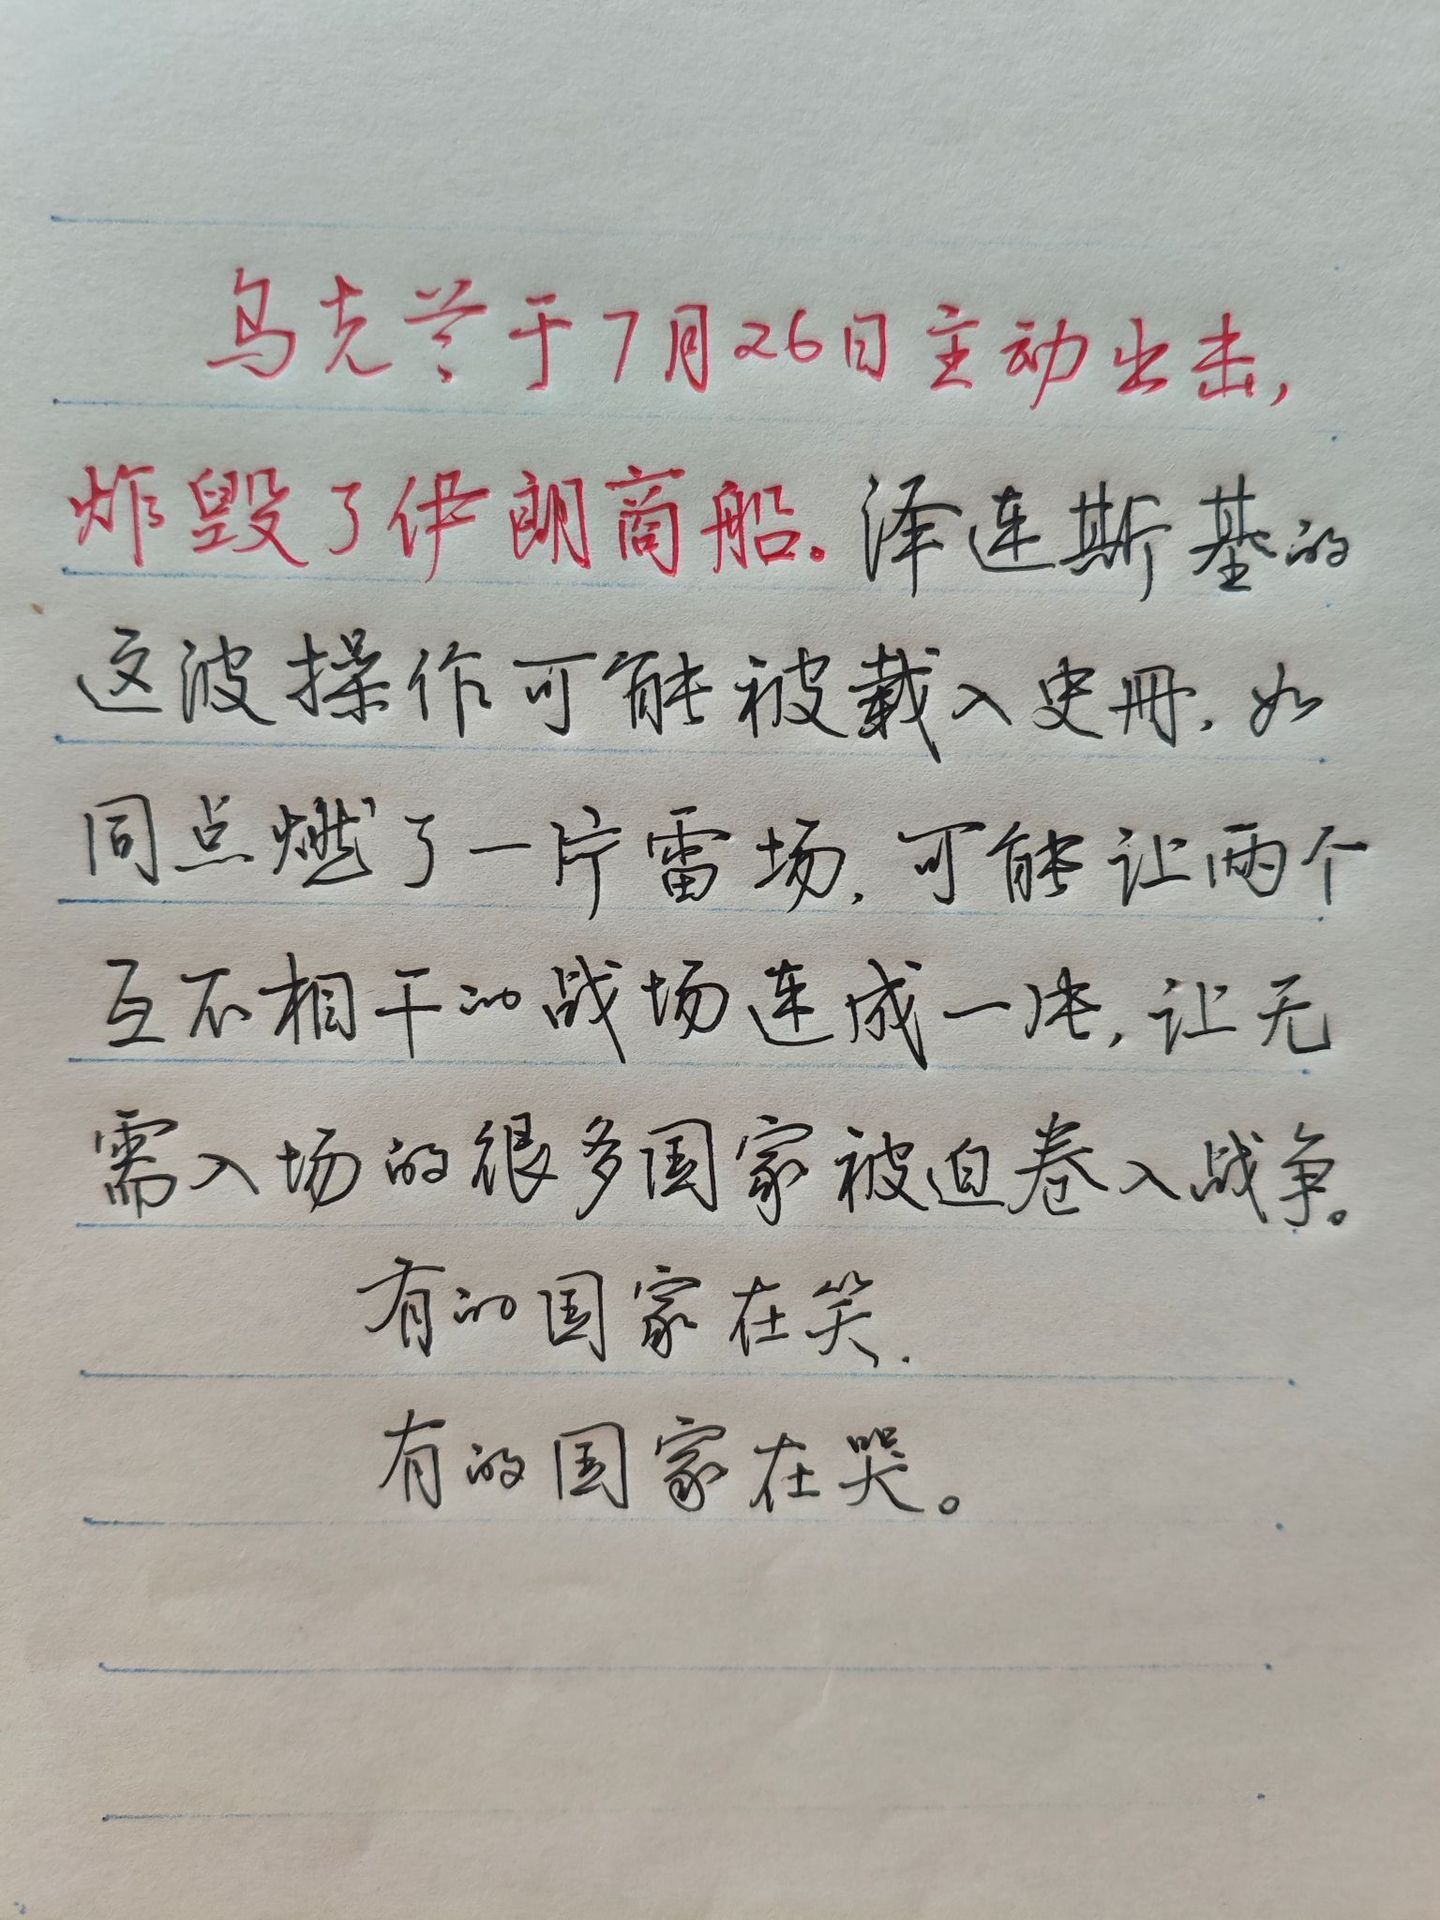 乌克兰于7月26日主动出击,
炸毁了伊朗商船。泽连斯基的
这波操作可能被载入史册,如
同点燃了一片雷场,可能让两个
互不相干的战场连成一片,让无
需入场的很多国家被迫卷入战争。
有的国家在笑.
有的国家在哭。